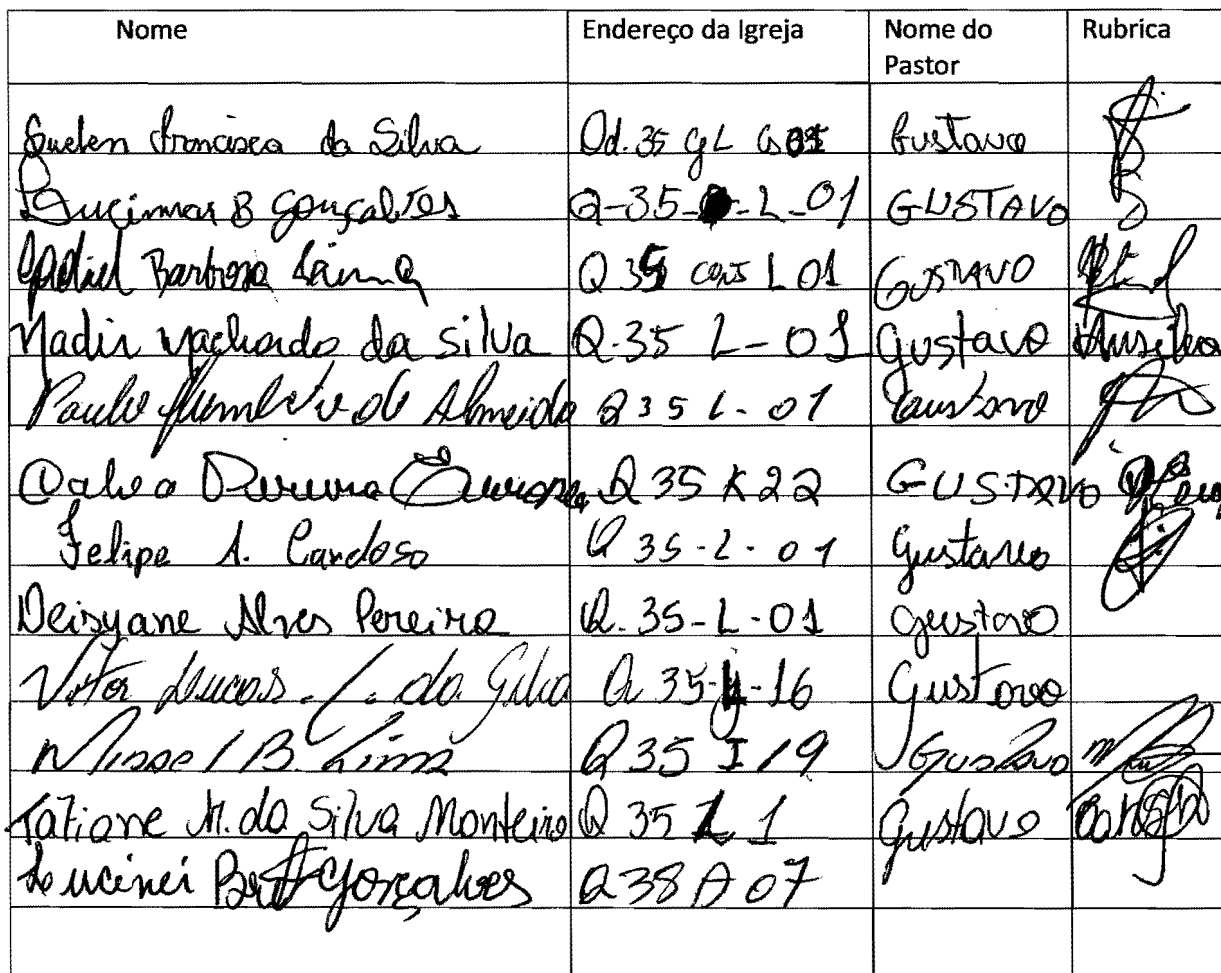 Nome Endereço da Igreja Nome do Pastor Rubrica
Suelen Francisca da Silva Qd. 35 Gustavo
Lucimar B Gonçalves Q-35- -L-01 GUSTAVO
Barbosa Q 35 L 01 GUSTAVO
Nadir Machado da Silva Q.35 L-01 Gustavo
Paulo Humberto de Almeida Q 35 L-01 Gustavo
Q 35 K 22 GUSTAVO
Felipe A. Cardoso Q 35-L-01 Gustavo
Deisyane Alves Pereira Q.35-L-01 Gustavo
Vitor Lucas da Silva Q 35 -16 Gustavo
B. Lima Q 35 I 19 Gustavo
Tatiane M. da Silva Monteiro Q 35 L 1 Gustavo
Lucinei Gonçalves Q38 A 07